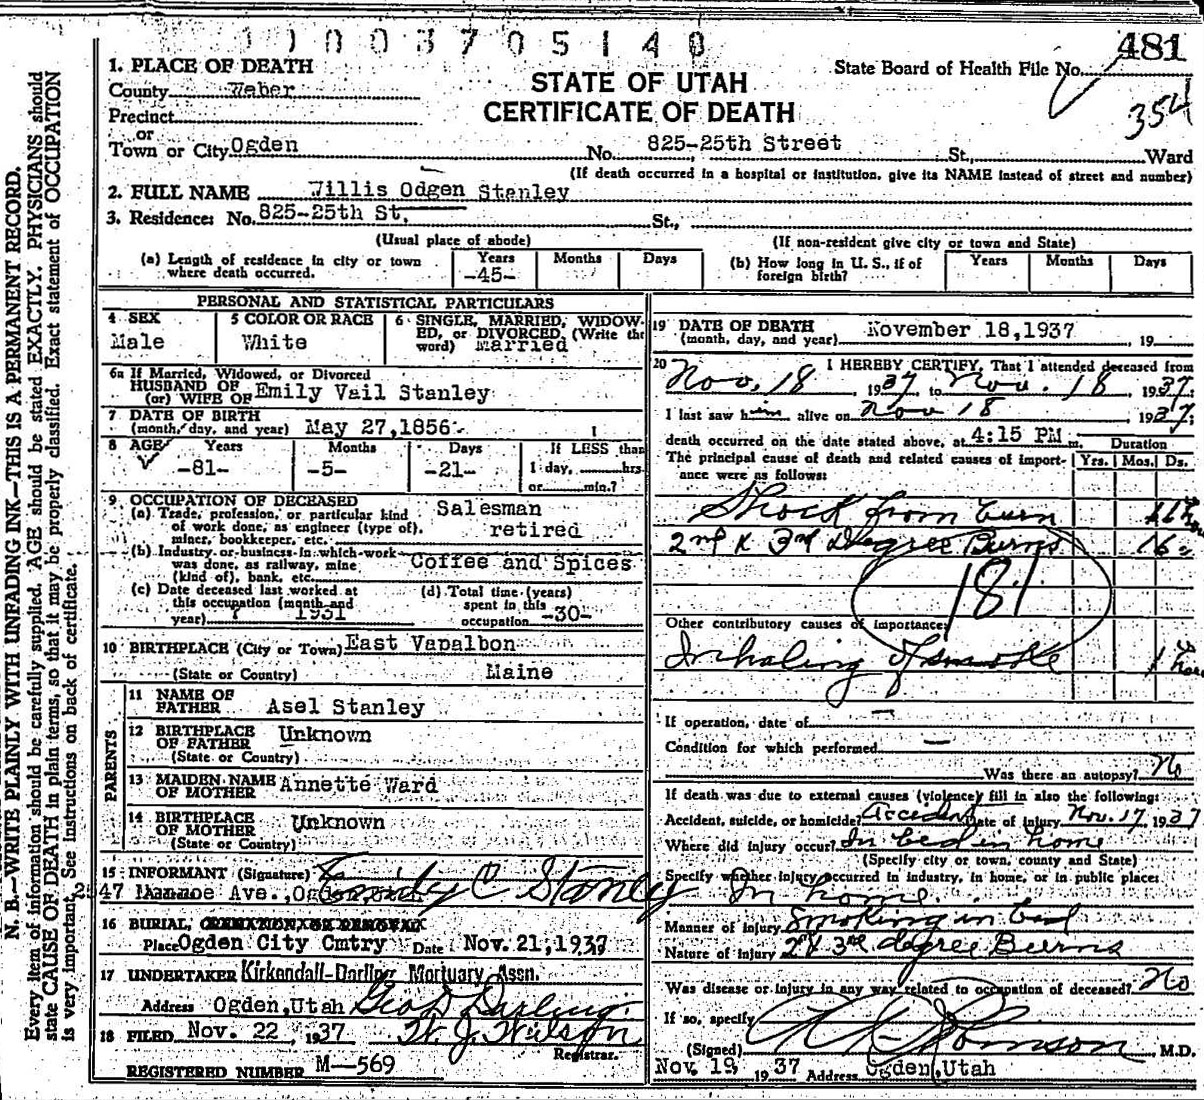 11003705140
481
354
State Board of Health File No.
STATE OF UTAH
CERTIFICATE OF DEATH
1. PLACE OF DEATH
County Weber
Precinct
or
Town or City Ogden No. 825-25th Street St., Ward
(If death occurred in a hospital or institution, give its NAME instead of street and number)
2. FULL NAME Willis Odgen Stanley
3. Residence: No. 825-25th St, St.,
(Usual place of abode) (If non-resident give city or town and State)
(a) Length of residence in city or town where death occurred. Years -45- Months Days
(b) How long in U. S., if of foreign birth? Years Months Days
PERSONAL AND STATISTICAL PARTICULARS
4 SEX Male
5 COLOR OR RACE White
6 SINGLE, MARRIED, WIDOWED, or DIVORCED (Write the word) Married
6a If Married, Widowed, or Divorced
HUSBAND OF
(or) WIFE OF Emily Vail Stanley
7 DATE OF BIRTH
(month, day, and year) May 27,1856
8 AGE Years -81- Months -5- Days -21- If LESS than 1 day, hrs. or min.?
9 OCCUPATION OF DECEASED
(a) Trade, profession, or particular kind of work done, as engineer (type of), miner, bookkeeper, etc. Salesman retired
(b) Industry or business in which work was done, as railway, mine (kind of), bank, etc. Coffee and Spices
(c) Date deceased last worked at this occupation (month and year) 1931
(d) Total time (years) spent in this occupation -30-
10 BIRTHPLACE (City or Town) East Vapalbon
(State or Country) Maine
PARENTS
11 NAME OF FATHER Asel Stanley
12 BIRTHPLACE OF FATHER Unknown
(State or Country)
13 MAIDEN NAME OF MOTHER Annette Ward
14 BIRTHPLACE OF MOTHER Unknown
(State or Country)
15 INFORMANT (Signature) Emily C Stanley
2547 Monroe Ave., Ogden
16 BURIAL, CREMATION, OR REMOVAL
Place Ogden City Cmtry Date Nov. 21, 1937
17 UNDERTAKER Kirkendall-Darling Mortuary Assn.
Address Ogden, Utah Geo D Darling
18 FILED Nov. 22, 1937 W. J. Wilson
Registrar.
REGISTERED NUMBER M—569
19 DATE OF DEATH
(month, day, and year) November 18,1937 , 19
20 I HEREBY CERTIFY, That I attended deceased from
Nov. 18, 1937 to Nov. 18 1937.
I last saw him alive on Nov 18 1937,
death occurred on the date stated above, at 4:15 PM m. Duration
The principal cause of death and related causes of importance were as follows: Yrs. Mos. Ds.
Shock from burn
2nd & 3rd Degree Burns
181
Other contributory causes of importance:
Inhaling of smoke 1 hour
If operation, date of —
Condition for which performed —
Was there an autopsy? No
If death was due to external causes (violence) fill in also the following:
Accident, suicide, or homicide? Accident Date of injury Nov. 17 1937
Where did injury occur? In bed in home
(Specify city or town, county and State)
Specify whether injury occurred in industry, in home, or in public place:
In home.
Manner of injury Smoking in bed
Nature of injury 2 & 3rd degree Burns
Was disease or injury in any way related to occupation of deceased? No
If so, specify
(Signed) M.D.
Nov. 19, 1937 Address Ogden, Utah
N. B.—WRITE PLAINLY WITH UNFADING INK—THIS IS A PERMANENT RECORD.
Every item of information should be carefully supplied. AGE should be stated EXACTLY. PHYSICIANS should
state CAUSE OF DEATH in plain terms, so that it may be properly classified. Exact statement of OCCUPATION
is very important. See instructions on back of certificate.